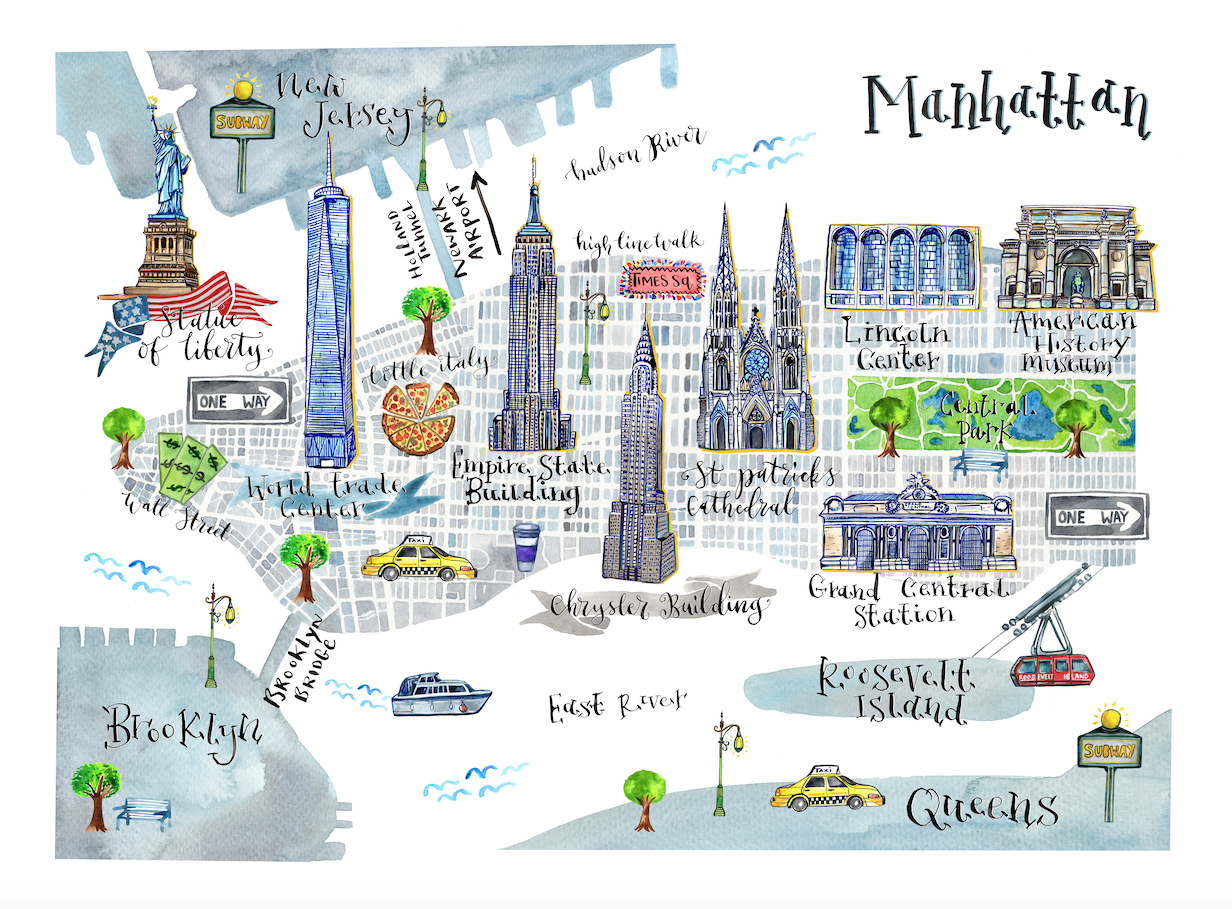 Manhattan
New
Jersey
SUBWAY
Hudson River
Holland
Tunnel
NEWARK
AIRPORT
high line walk
TIMES SQ
Statue
of liberty
Lincoln
Center
American
History
Museum
little italy
ONE WAY
Central
Park
Empire State
Building
St patricks
Cathedral
World trade
Center
Wall Street
ONE WAY
TAXI
Grand Central
Station
Chrysler Building
BROOKLYN
BRIDGE
Roosevelt
Island
ROOSEVELT ISLAND
East River
Brooklyn
SUBWAY
TAXI
Queens